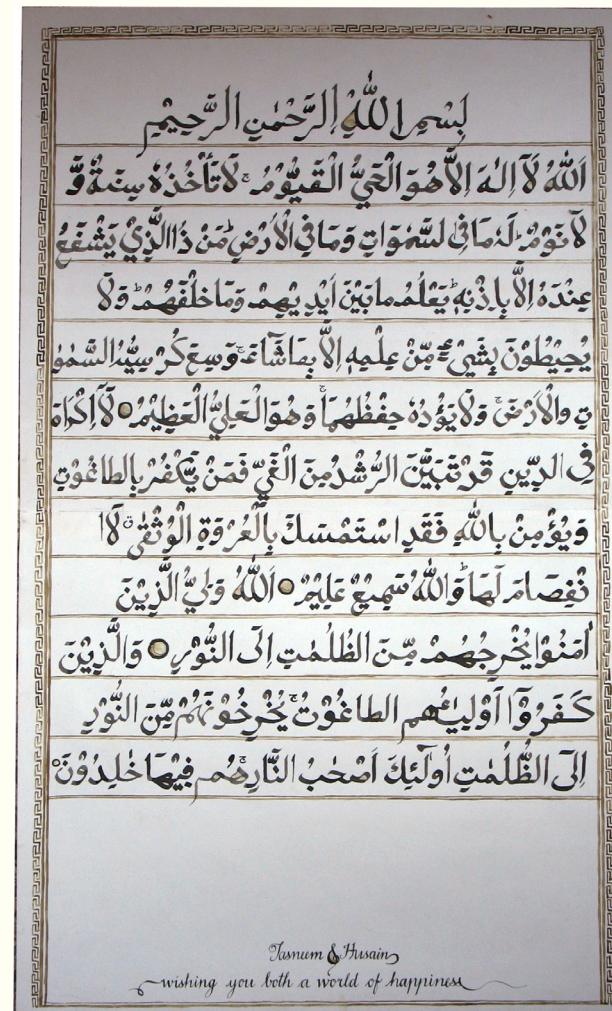 بِسْمِ اللهِ الرَّحْمٰنِ الرَّحِيْمِ
اَللهُ لَآ اِلٰهَ اِلَّا هُوَ الْحَيُّ الْقَيُّوْمُ ۚ لَا تَأْخُذُهٗ سِنَةٌ وَّ
لَا نَوْمٌ ؕ لَهٗ مَا فِى السَّمٰوَاتِ وَمَا فِى الْاَرْضِ ؕ مَنْ ذَا الَّذِيْ يَشْفَعُ
عِنْدَهٗ اِلَّا بِاِذْنِهٖ ؕ يَعْلَمُ مَا بَيْنَ اَيْدِيْهِمْ وَمَا خَلْفَهُمْ ؕ وَلَا
يُحِيْطُوْنَ بِشَيْءٍ مِّنْ عِلْمِهٖ اِلَّا بِمَا شَآءَ ۚ وَسِعَ كُرْسِيُّهُ السَّمٰو
تِ وَالْاَرْضَ ۚ وَلَا يَؤُدُهٗ حِفْظُهُمَا ۚ وَهُوَ الْعَلِيُّ الْعَظِيْمُ ○ لَآ اِكْرَاهَ
فِى الدِّيْنِ قَدْ تَبَيَّنَ الرُّشْدُ مِنَ الْغَيِّ فَمَنْ يَّكْفُرْ بِالطَّاغُوْتِ
وَيُؤْمِنْ بِاللهِ فَقَدِ اسْتَمْسَكَ بِالْعُرْوَةِ الْوُثْقٰى ۗ لَا ا
نْفِصَامَ لَهَا ؕ وَاللهُ سَمِيْعٌ عَلِيْمٌ ○ اَللهُ وَلِيُّ الَّذِيْنَ
اٰمَنُوْا يُخْرِجُهُمْ مِّنَ الظُّلُمٰتِ اِلَى النُّوْرِ ○ وَالَّذِيْنَ
كَفَرُوْٓا اَوْلِيٰٓـُٔهُمُ الطَّاغُوْتُ ۙ يُخْرِخُوْنَهُمْ مِّنَ النُّوْرِ
اِلَى الظُّلُمٰتِ اُولٰٓئِكَ اَصْحٰبُ النَّارِ ۚ هُمْ فِيْهَا خٰلِدُوْنَ ○
Tasneem & Husain
wishing you both a world of happiness